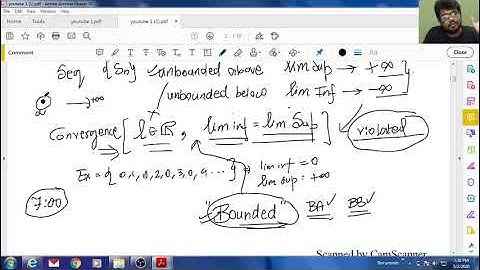 youtube 1 (5).pdf - Adobe Acrobat Reader DC
Home Tools youtube 1.pdf youtube 1 (5).pdf
Comment
Seq {Sn} unbounded above lim Sup → +∞
→+∞ unbounded below lim Inf → -∞
Convergence [ l ∈ ℝ, lim inf = lim Sup ] violated
Ex = { 0,1,0,2,0,3,0,4 ... } → lim inf = 0
lim sup = +∞
7:00 "Bounded" BA✓ BB✓
Scanned by CamScanner